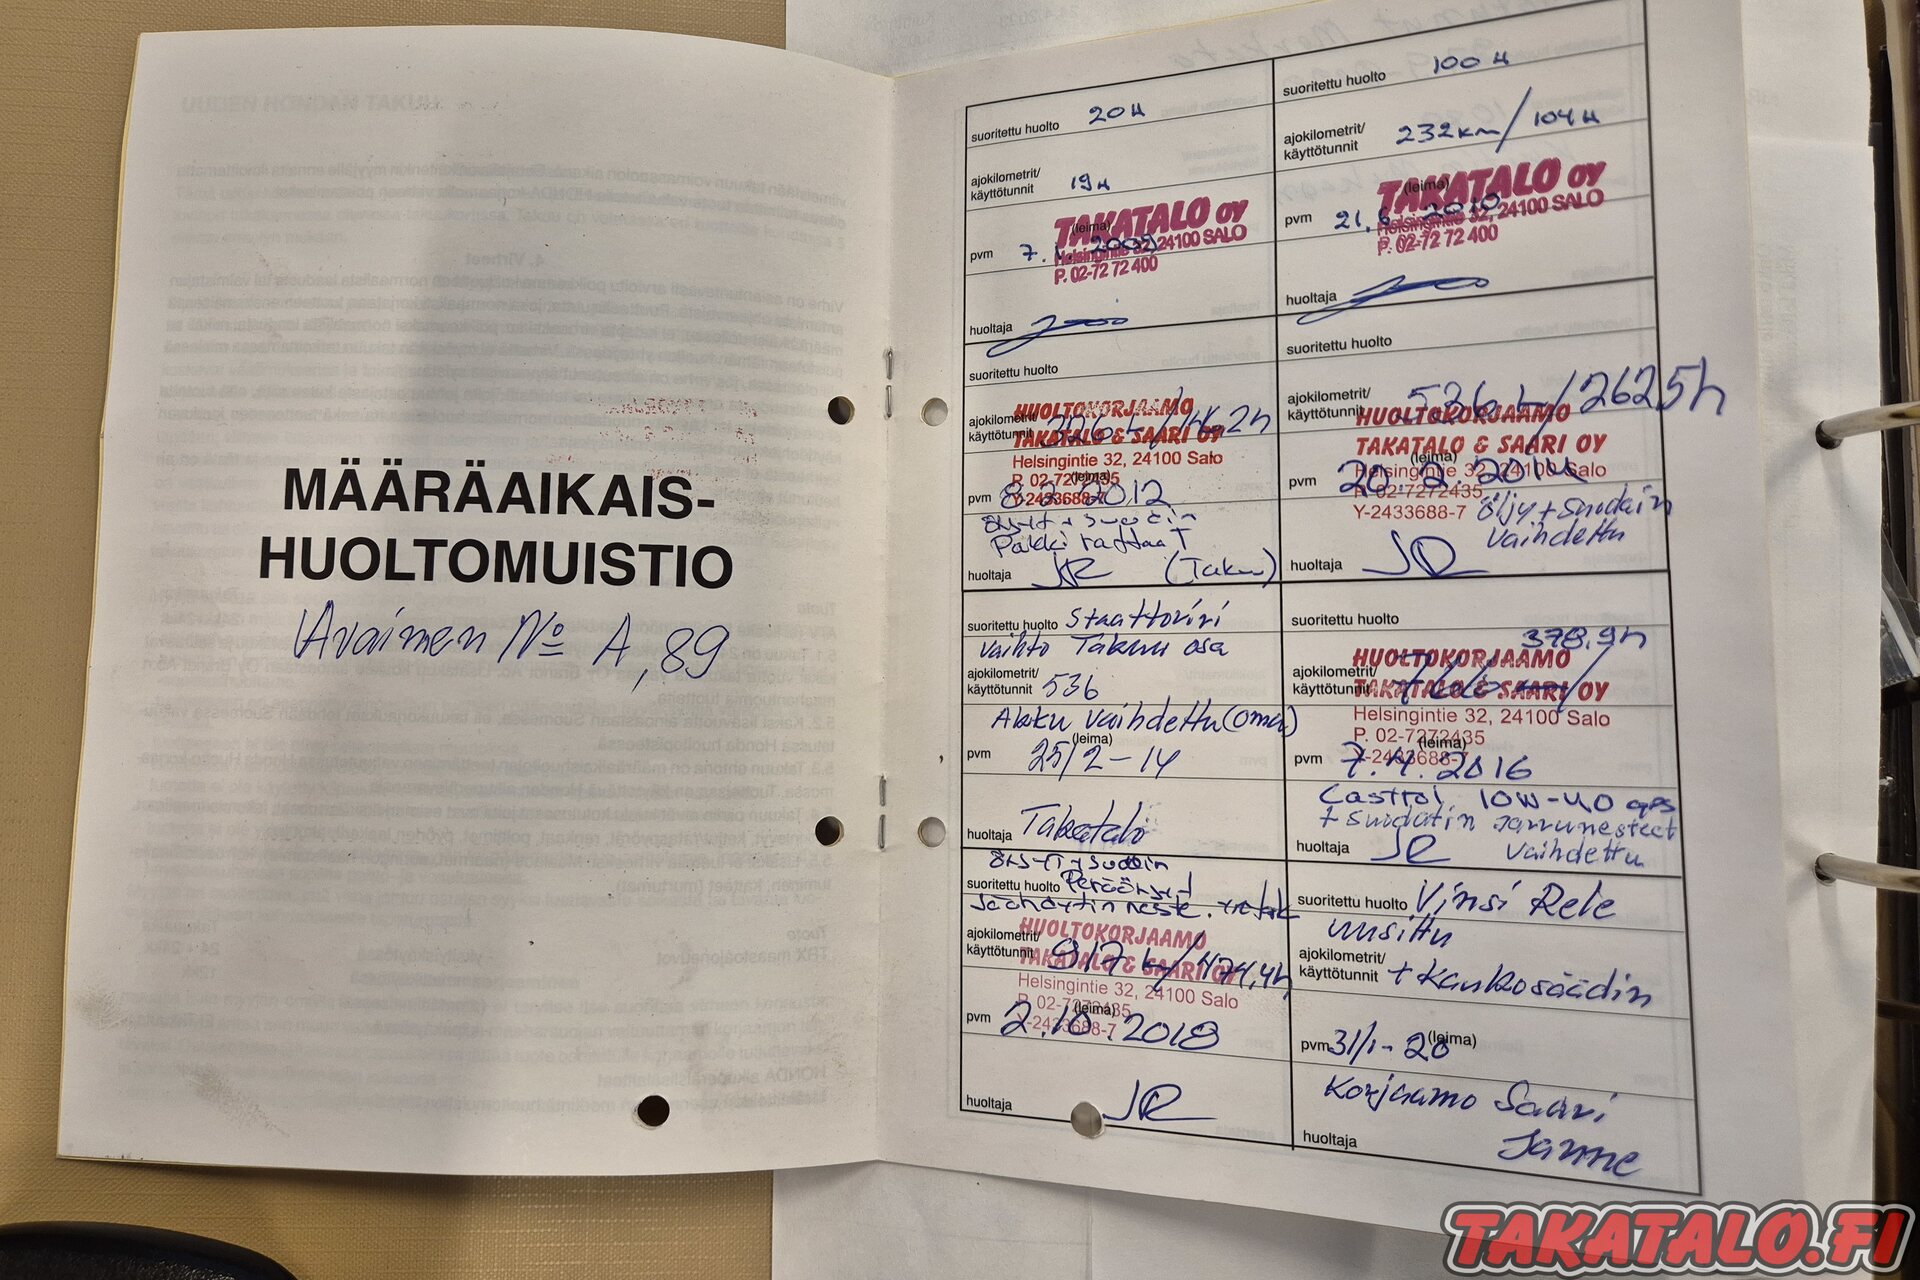 MÄÄRÄAIKAIS-
HUOLTOMUISTIO
Avaimen No A,89
suoritettu huolto 20 H
ajokilometrit/
käyttötunnit 19 H
TAKATALO OY
(leima)
Helsingintie 32, 24100 SALO
pvm 7. 2009
P. 02-72 72 400
huoltaja
suoritettu huolto 100 H
ajokilometrit/
käyttötunnit 232 km/104 H
TAKATALO OY
(leima)
pvm 21. 2010
Helsingintie 32, 24100 SALO
P. 02-72 72 400
huoltaja
suoritettu huolto
ajokilometrit/
käyttötunnit
HUOLTOKORJAAMO
TAKATALO & SAARI OY
Helsingintie 32, 24100 Salo
P. 02-7272435
(leima)
pvm 8.2.2012
Y-2433688-7
Pakki rattaat
huoltaja JR (Takuu)
suoritettu huolto
ajokilometrit/
käyttötunnit 536 k/262,5h
HUOLTOKORJAAMO
TAKATALO & SAARI OY
(leima)
Helsingintie 32, 24100 Salo
pvm 20.2.2014
P. 02-7272435
Y-2433688-7 öljy + suodatin
vaihdettu
huoltaja JR
suoritettu huolto Staattorin
vaihto Takuu osa
ajokilometrit/
käyttötunnit 536
Akku vaihdettu (oma)
(leima)
pvm 25/2-14
huoltaja Takatalo
suoritettu huolto
378,9h
ajokilometrit/
käyttötunnit
HUOLTOKORJAAMO
TAKATALO & SAARI OY
Helsingintie 32, 24100 Salo
P. 02-7272435
(leima)
Y-2433688-7
pvm 7.4.2016
Castrol 10W-40
+ suodatin jarrunesteet
vaihdettu
huoltaja JR
suoritettu huolto Peräöljyt
Jäähdytin neste.
ajokilometrit/
käyttötunnit 917 k/474,4h
HUOLTOKORJAAMO
TAKATALO & SAARI OY
Helsingintie 32, 24100 Salo
P. 02-7272435
(leima)
Y-2433688-7
pvm 2.10.2018
huoltaja JR
suoritettu huolto Vinsi Rele
uusittu
ajokilometrit/
käyttötunnit + kaukosäädin
(leima)
pvm 31/1-20
Korjaamo Saari
huoltaja Janne
TAKATALO.FI